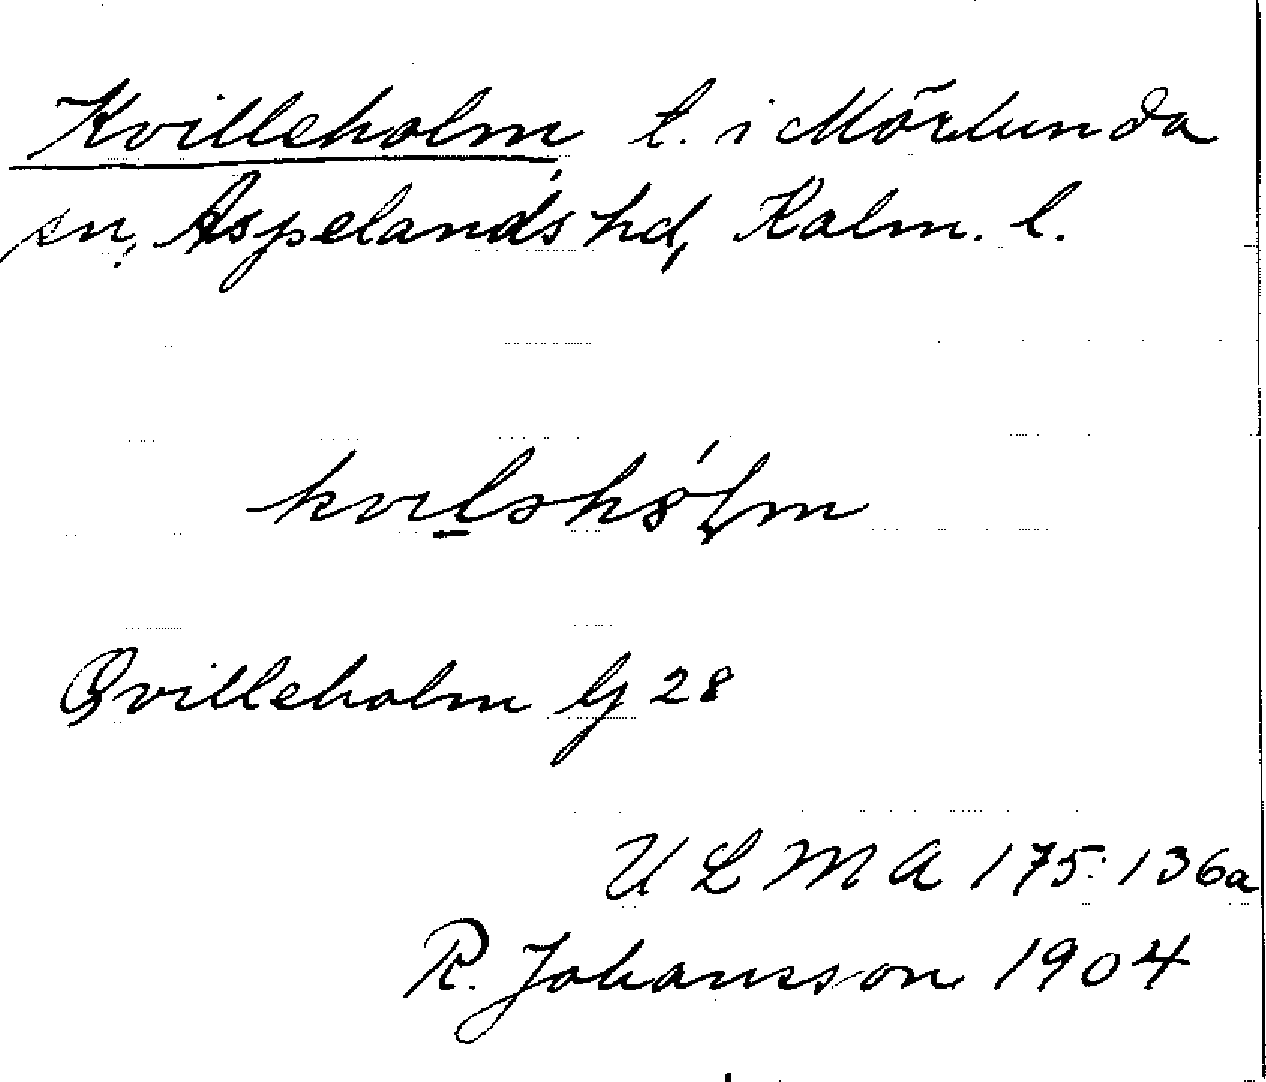 Kvilleholm t. i Mörlunda
sn, Aspelands hd, Kalm. l.
Qvilleholm G 28
U L M A 175:136a
R. Johansson 1904